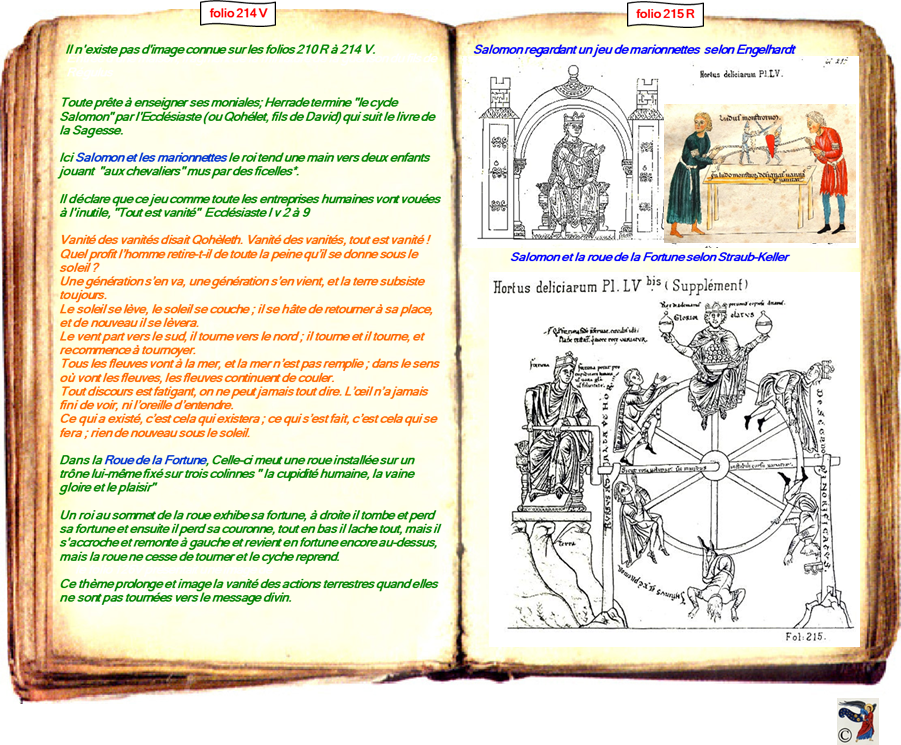 folio 214 V
Il n'existe pas d'image connue sur les folios 210 R à 214 V.
Toute prête à enseigner ses moniales; Herrade termine "le cycle
Salomon" par l'Ecclésiaste (ou Qohélet, fils de David) qui suit le livre de
la Sagesse.
Ici Salomon et les marionnettes le roi tend une main vers deux enfants
jouant "aux chevaliers" mus par des ficelles".
Il déclare que ce jeu comme toute les entreprises humaines vont vouées
à l'inutile, "Tout est vanité" Ecclésiaste I v 2 à 9
Vanité des vanités disait Qohèleth. Vanité des vanités, tout est vanité !
Quel profit l'homme retire-t-il de toute la peine qu'il se donne sous le
soleil ?
Une génération s'en va, une génération s'en vient, et la terre subsiste
toujours.
Le soleil se lève, le soleil se couche ; il se hâte de retourner à sa place,
et de nouveau il se lèvera.
Le vent part vers le sud, il tourne vers le nord ; il tourne et il tourne, et
recommence à tournoyer.
Tous les fleuves vont à la mer, et la mer n'est pas remplie ; dans le sens
où vont les fleuves, les fleuves continuent de couler.
Tout discours est fatigant, on ne peut jamais tout dire. L'œil n'a jamais
fini de voir, ni l'oreille d'entendre.
Ce qui a existé, c'est cela qui existera ; ce qui s'est fait, c'est cela qui se
fera ; rien de nouveau sous le soleil.
Dans la Roue de la Fortune, Celle-ci meut une roue installée sur un
trône lui-même fixé sur trois colinnes " la cupidité humaine, la vaine
gloire et le plaisir"
Un roi au sommet de la roue exhibe sa fortune, à droite il tombe et perd
sa fortune et ensuite il perd sa couronne, tout en bas il lache tout, mais il
s'accroche et remonte à gauche et revient en fortune encore au-dessus,
mais la roue ne cesse de tourner et le cyche reprend.
Ce thème prolonge et image la vanité des actions terrestres quand elles
ne sont pas tournées vers le message divin.
folio 215 R
Salomon regardant un jeu de marionnettes selon Engelhardt
Hortus deliciarum Pl. LV.
ludus monstrorum
Salomon et la roue de la Fortune selon Straub-Keller
Hortus deliciarum Pl. LV bis (Supplément)
Glorior elatus
fortuna
terra
Fol: 215.
©